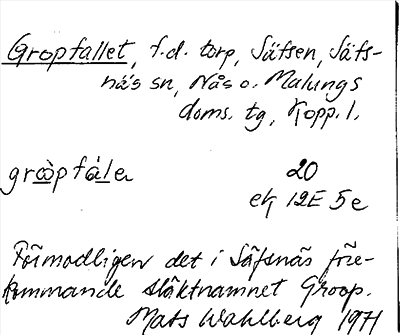 Gropfallet, f.d. torp, Säfsen, Säfs-
näs sn, Nås o. Malungs
doms. tg, Kopp. l.
grὼpfàla 20
ek 12E 5e
Förmodligen det i Säfsnäs före-
kommande släktnamnet Groop.
Mats Wahlberg 1971